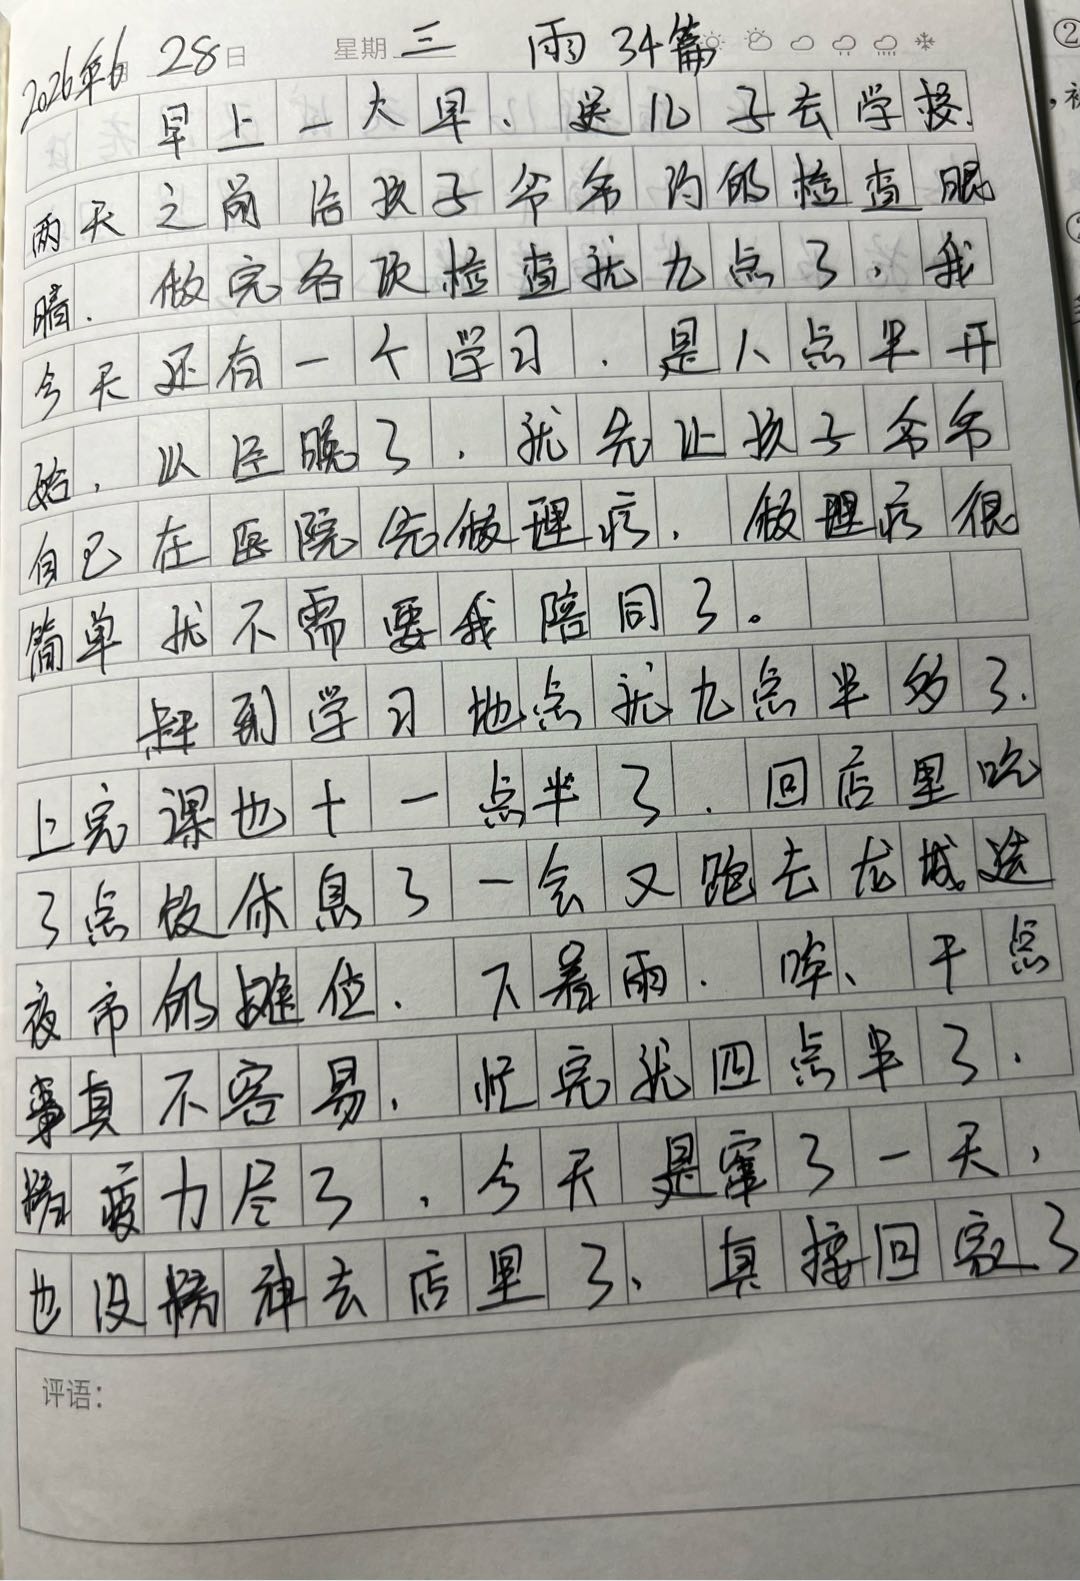 2026年6月28日 星期三 雨 34篇
早上一大早、送儿子去学校.
两天之前给孩子爷爷约的检查眼
睛. 做完各项检查就九点了,我
今天还有一个学习.是八点半开
始,以经晚了.就先让孩子爷爷
自己在医院先做理疗.做理疗很
简单就不需要我陪同了。
赶到学习地点就九点半多了.
上完课也十一点半了.回店里吃
了点饭休息了一会又跑去龙城送
夜市的摊位.下着雨.哎、干点
事真不容易.忙完就四点半了.
精疲力尽了,今天是窜了一天,
也没精神去店里了、真接回家了
评语: